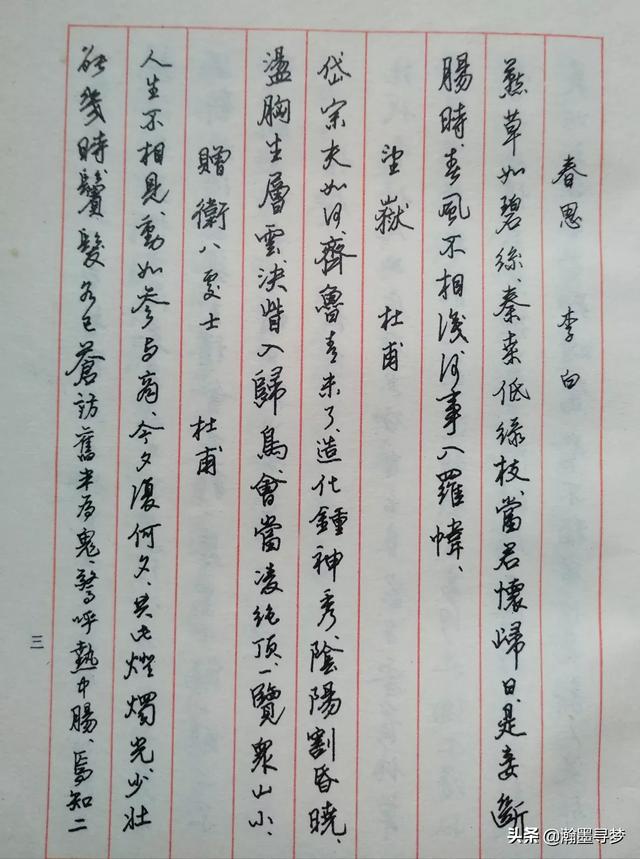 春思 李白
燕草如碧絲、秦桑低綠枝、當君懷歸日、是妾斷
腸時、春風不相識、何事入羅幃、
望嶽 杜甫
岱宗夫如何、齊魯青未了、造化鍾神秀、陰陽割昏曉、
盪胸生層雲、決眥入歸鳥、會當凌絕頂、一覽眾山小、
贈衛八處士 杜甫
人生不相見、動如參與商、今夕復何夕、共此燈燭光、少壯
能幾時、鬢髮各已蒼、訪舊半為鬼、驚呼熱中腸、焉知二
三
头条 @瀚墨寻梦